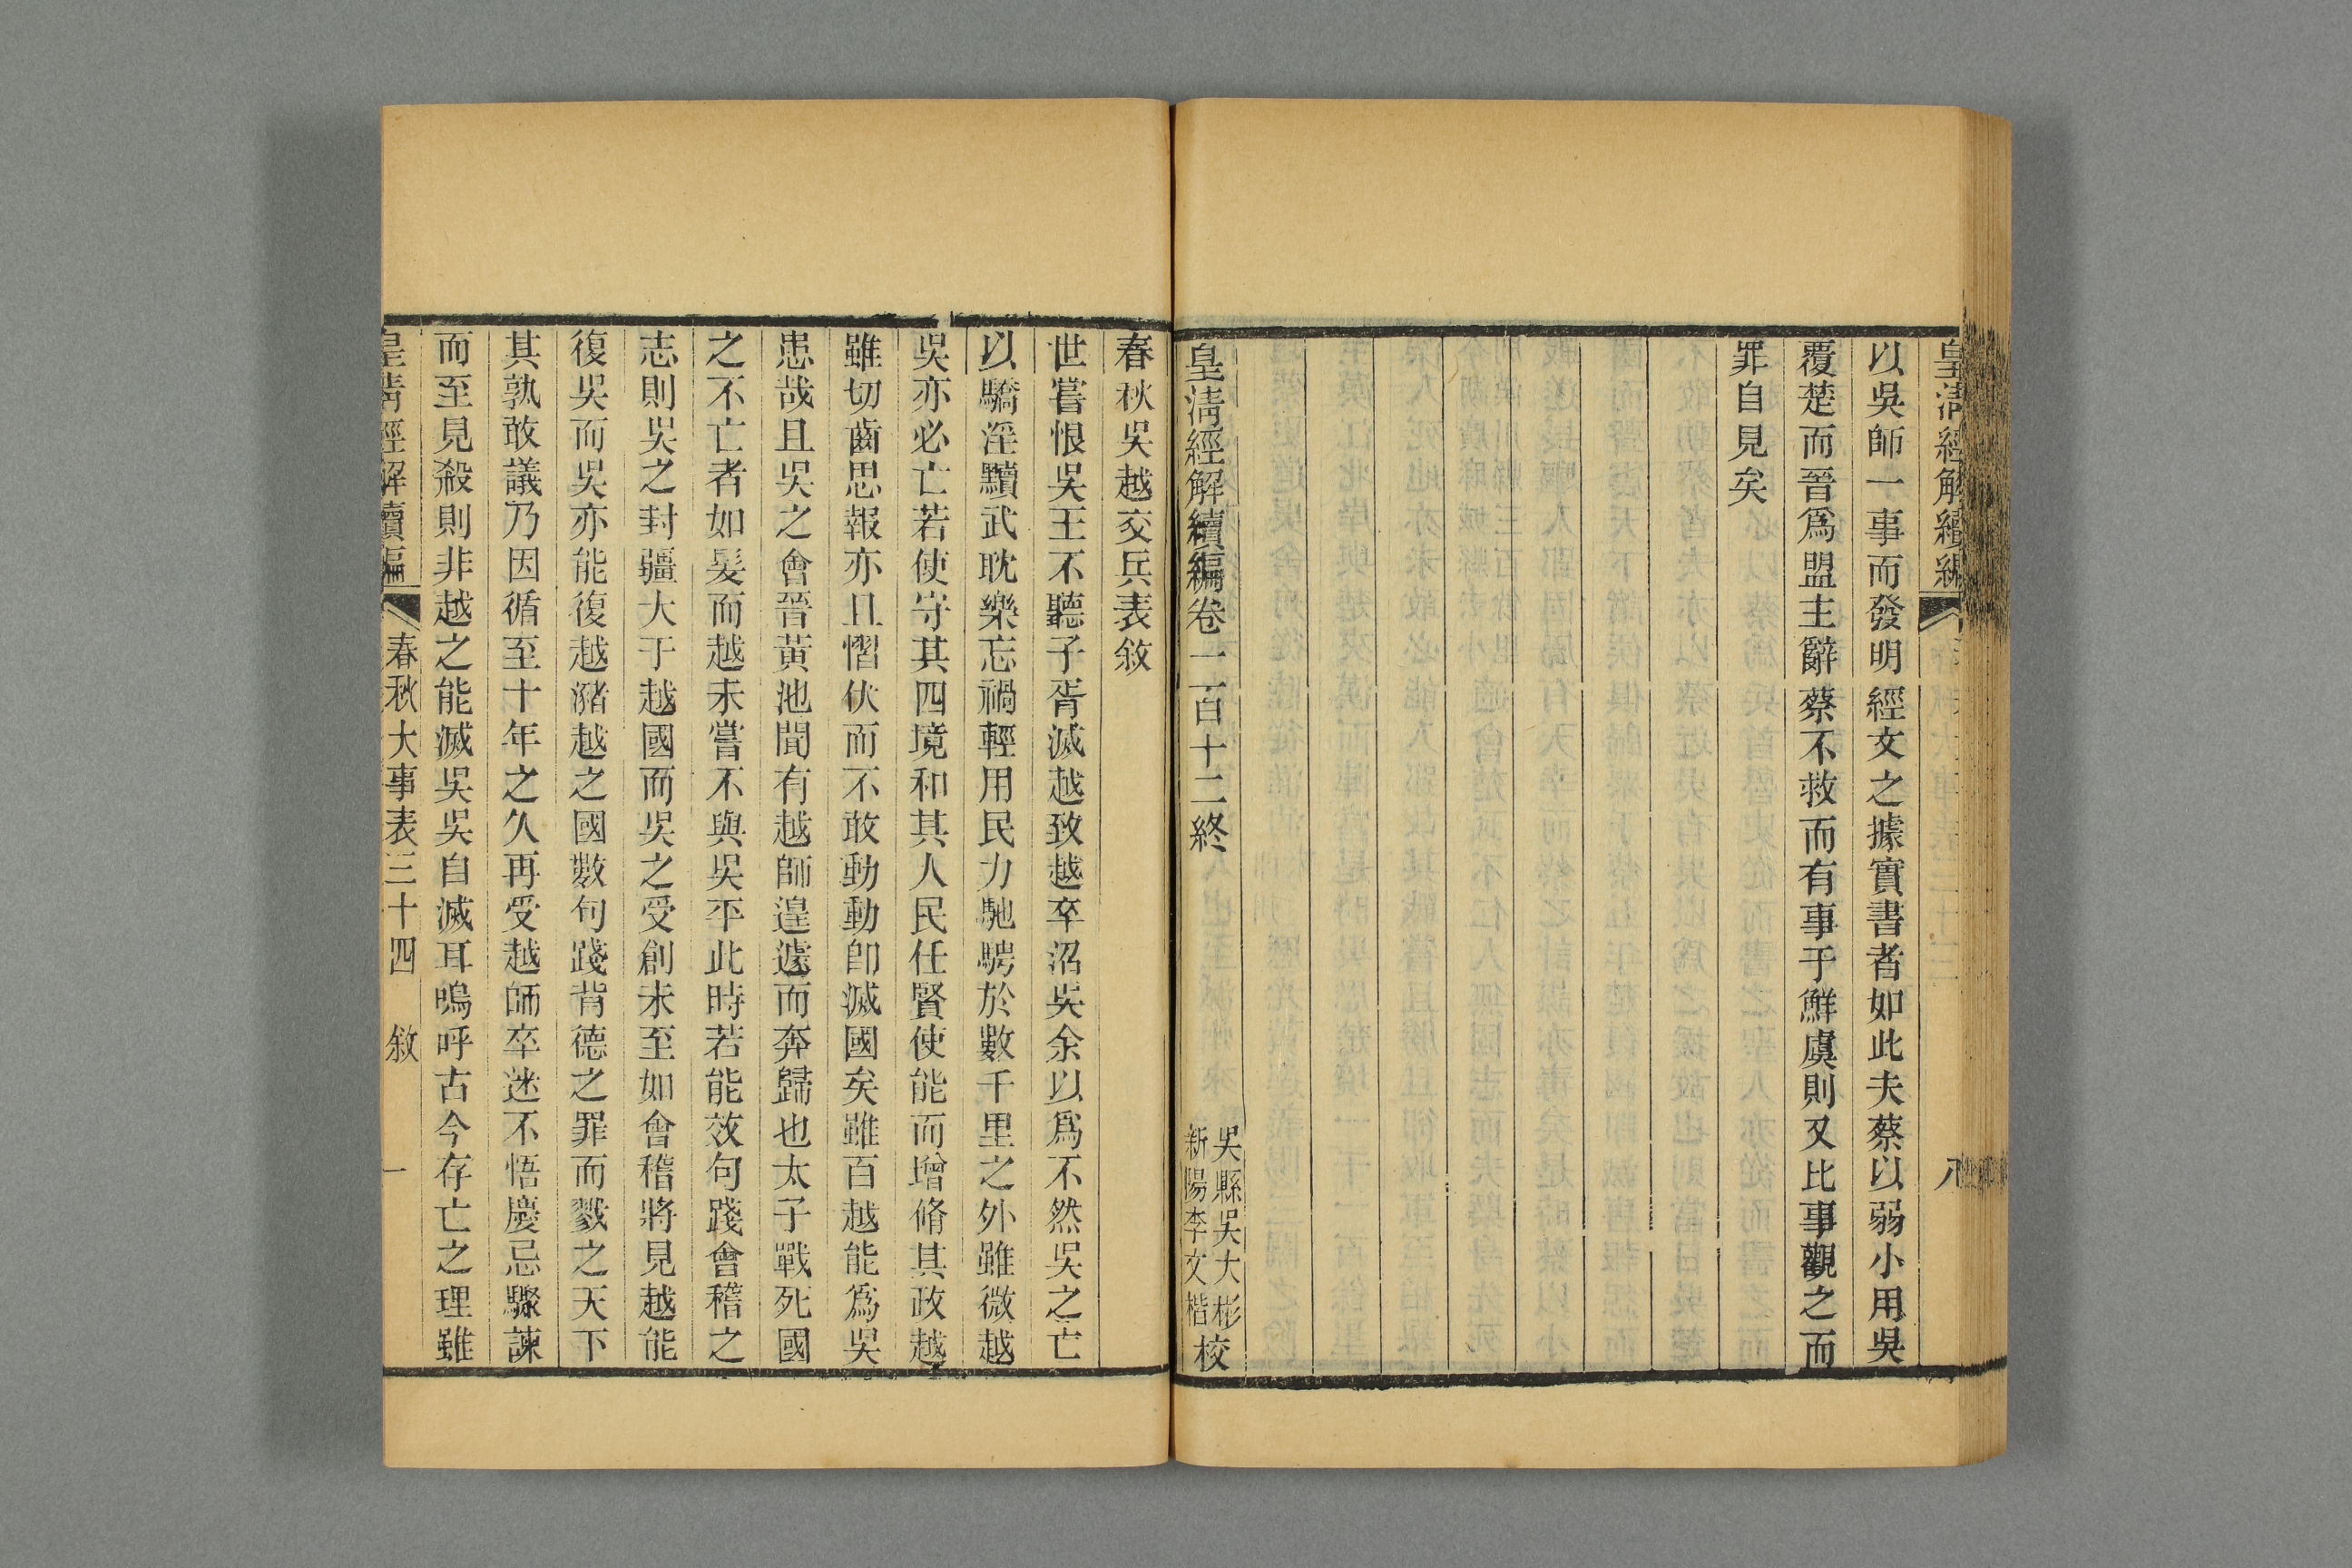 皇淸經解續編
八
以吳師一事而發明經文之據實書者如此夫蔡以弱小用吳
覆楚而晉爲盟主辭蔡不救而有事于鮮虞則又比事觀之而
罪自見矣
皇淸經解續編卷一百十二終
吳縣吳大彬
新陽李文楷
校
春秋吳越交兵表敘
世嘗恨吳王不聽子胥滅越致越卒沼吳余以爲不然吳之亡
以驕淫黷武耽樂忘禍輕用民力馳騁於數千里之外雖微越
吳亦必亡若使守其四境和其人民任賢使能而增脩其政越
雖切齒思報亦且慴伏而不敢動動卽滅國矣雖百越能爲吳
患哉且吳之會晉黃池聞有越師遑遽而奔歸也太子戰死國
之不亡者如髮而越未嘗不與吳平此時若能效句踐會稽之
志則吳之封疆大于越國而吳之受創未至如會稽將見越能
復吳而吳亦能復越瀦越之國數句踐背德之罪而戮之天下
其孰敢議乃因循至十年之久再受越師卒迷不悟慶忌驟諫
而至見殺則非越之能滅吳吳自滅耳嗚呼古今存亡之理雖
皇淸經解續編
春秋大事表三十四　敘
一